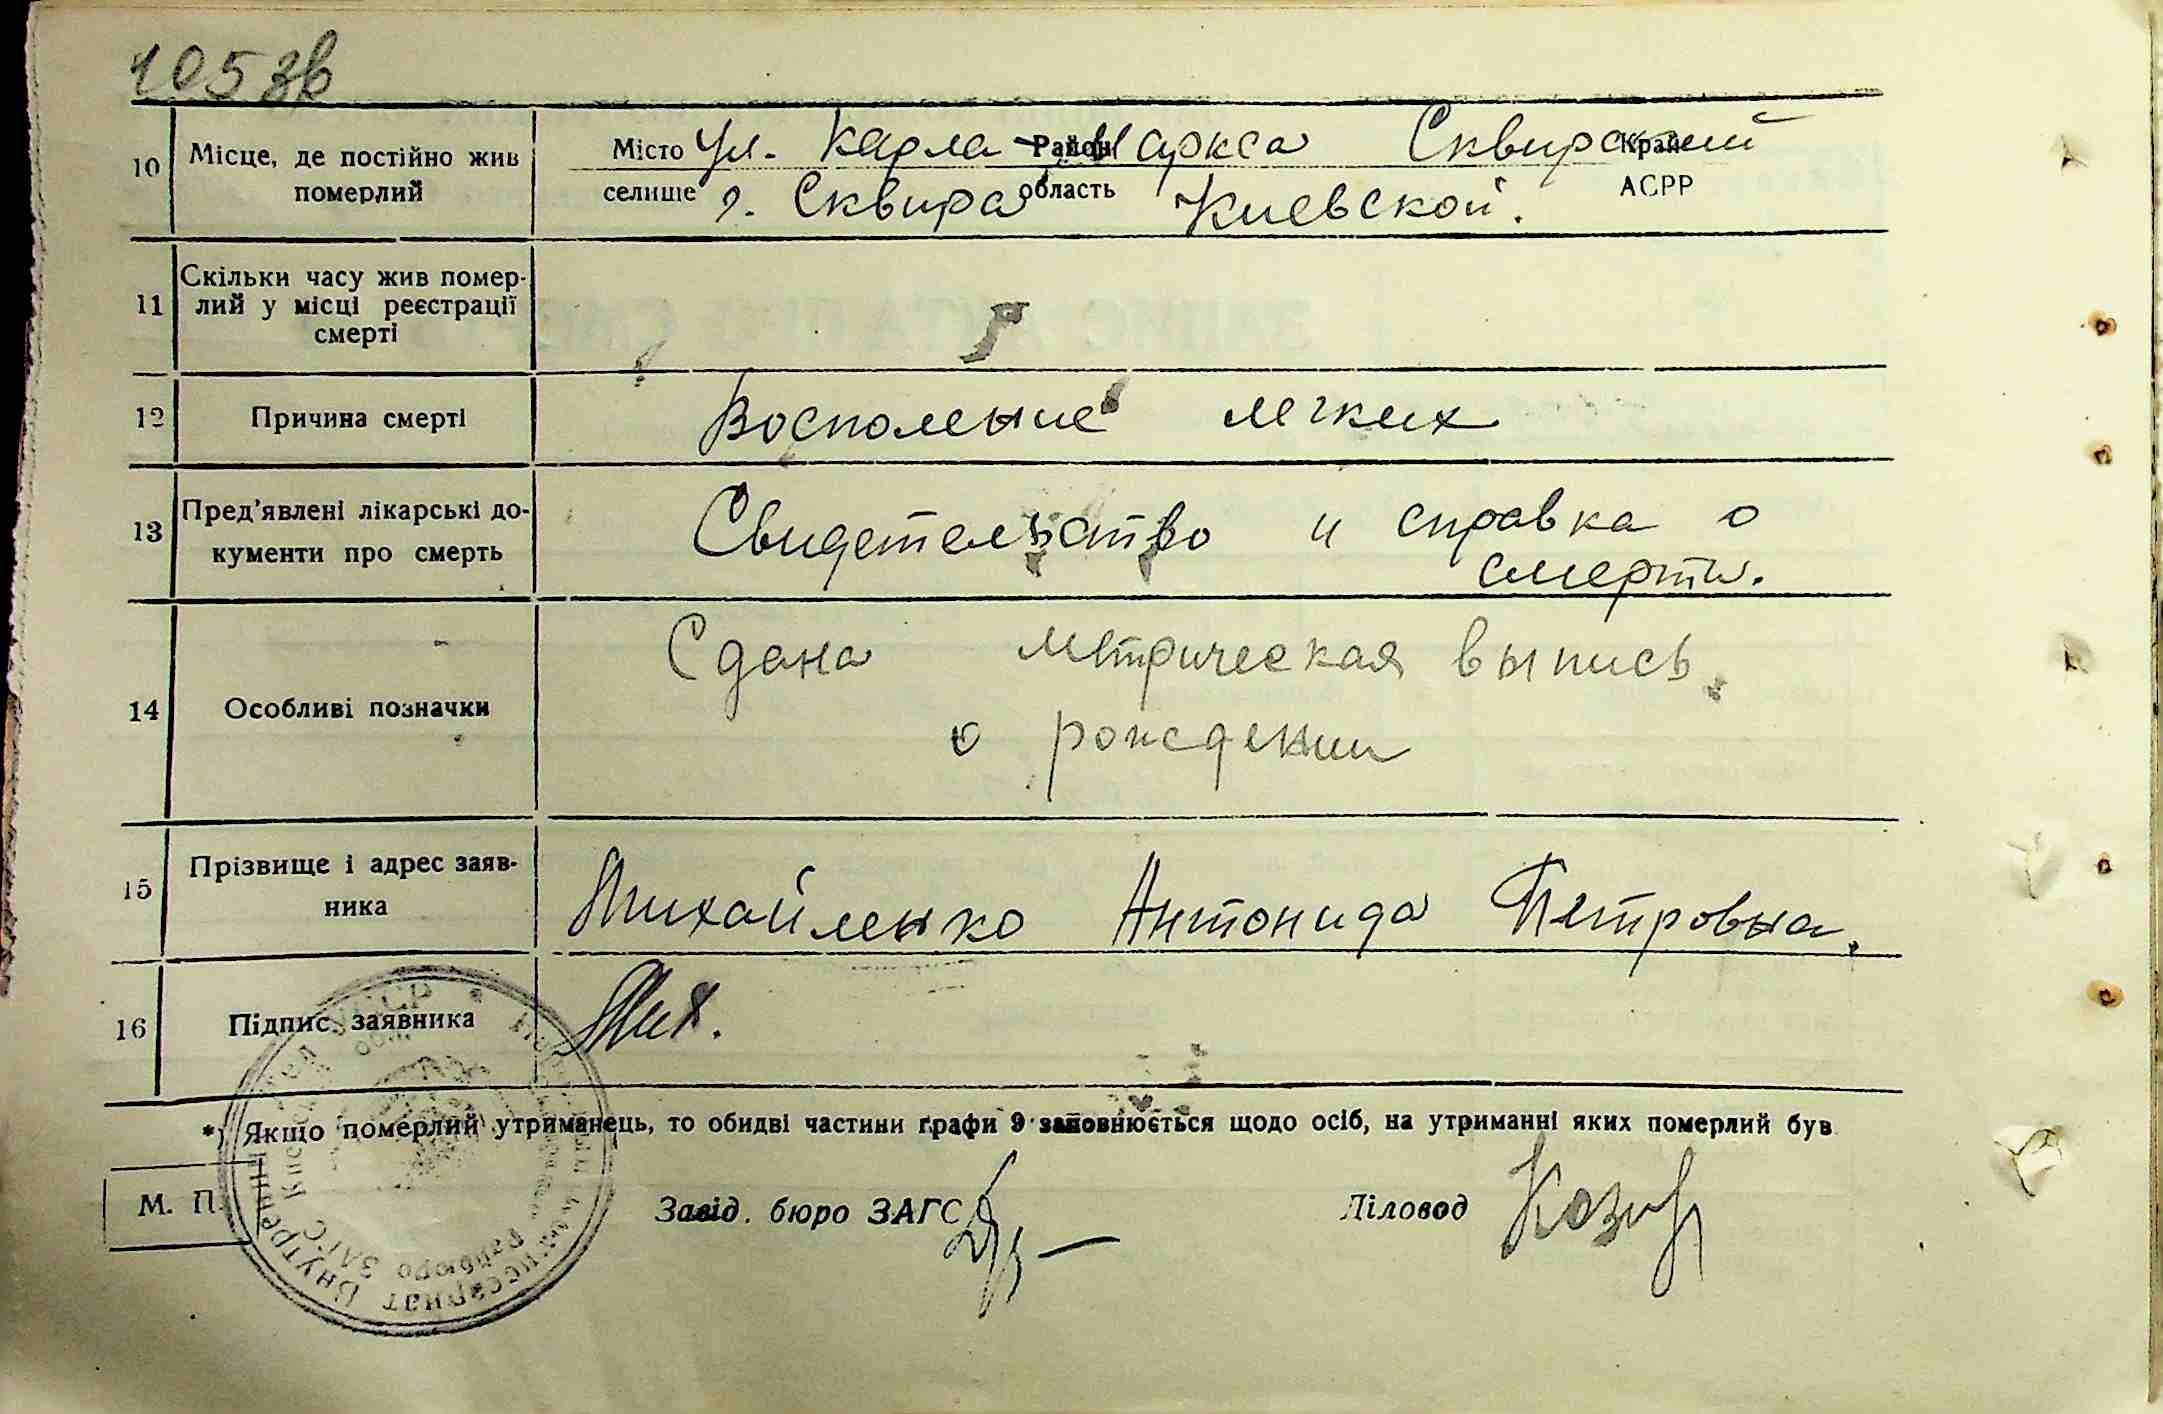 105 зв
10 Місце, де постійно жив Місто ул. Карла Район Маркса Сквирский Край
померлий селище г. Сквира область Киевской. АСРР
11 Скільки часу жив помер-
лий у місці реєстрації
смерті
12 Причина смерті Восполение легких
13 Пред'явлені лікарські до- Свидетельство и справка о
кументи про смерть смерти.
14 Особливі позначки Сдана метрическая выпись
о рождении
15 Прізвище і адрес заяв- Михайленко Антонида Петровна.
ника
16 Підпис заявника Мих.
*) Якщо померлий утриманець, то обидві частини графи 9 заповнюється щодо осіб, на утриманні яких померлий був
М. П. Завід. бюро ЗАГС Діловод